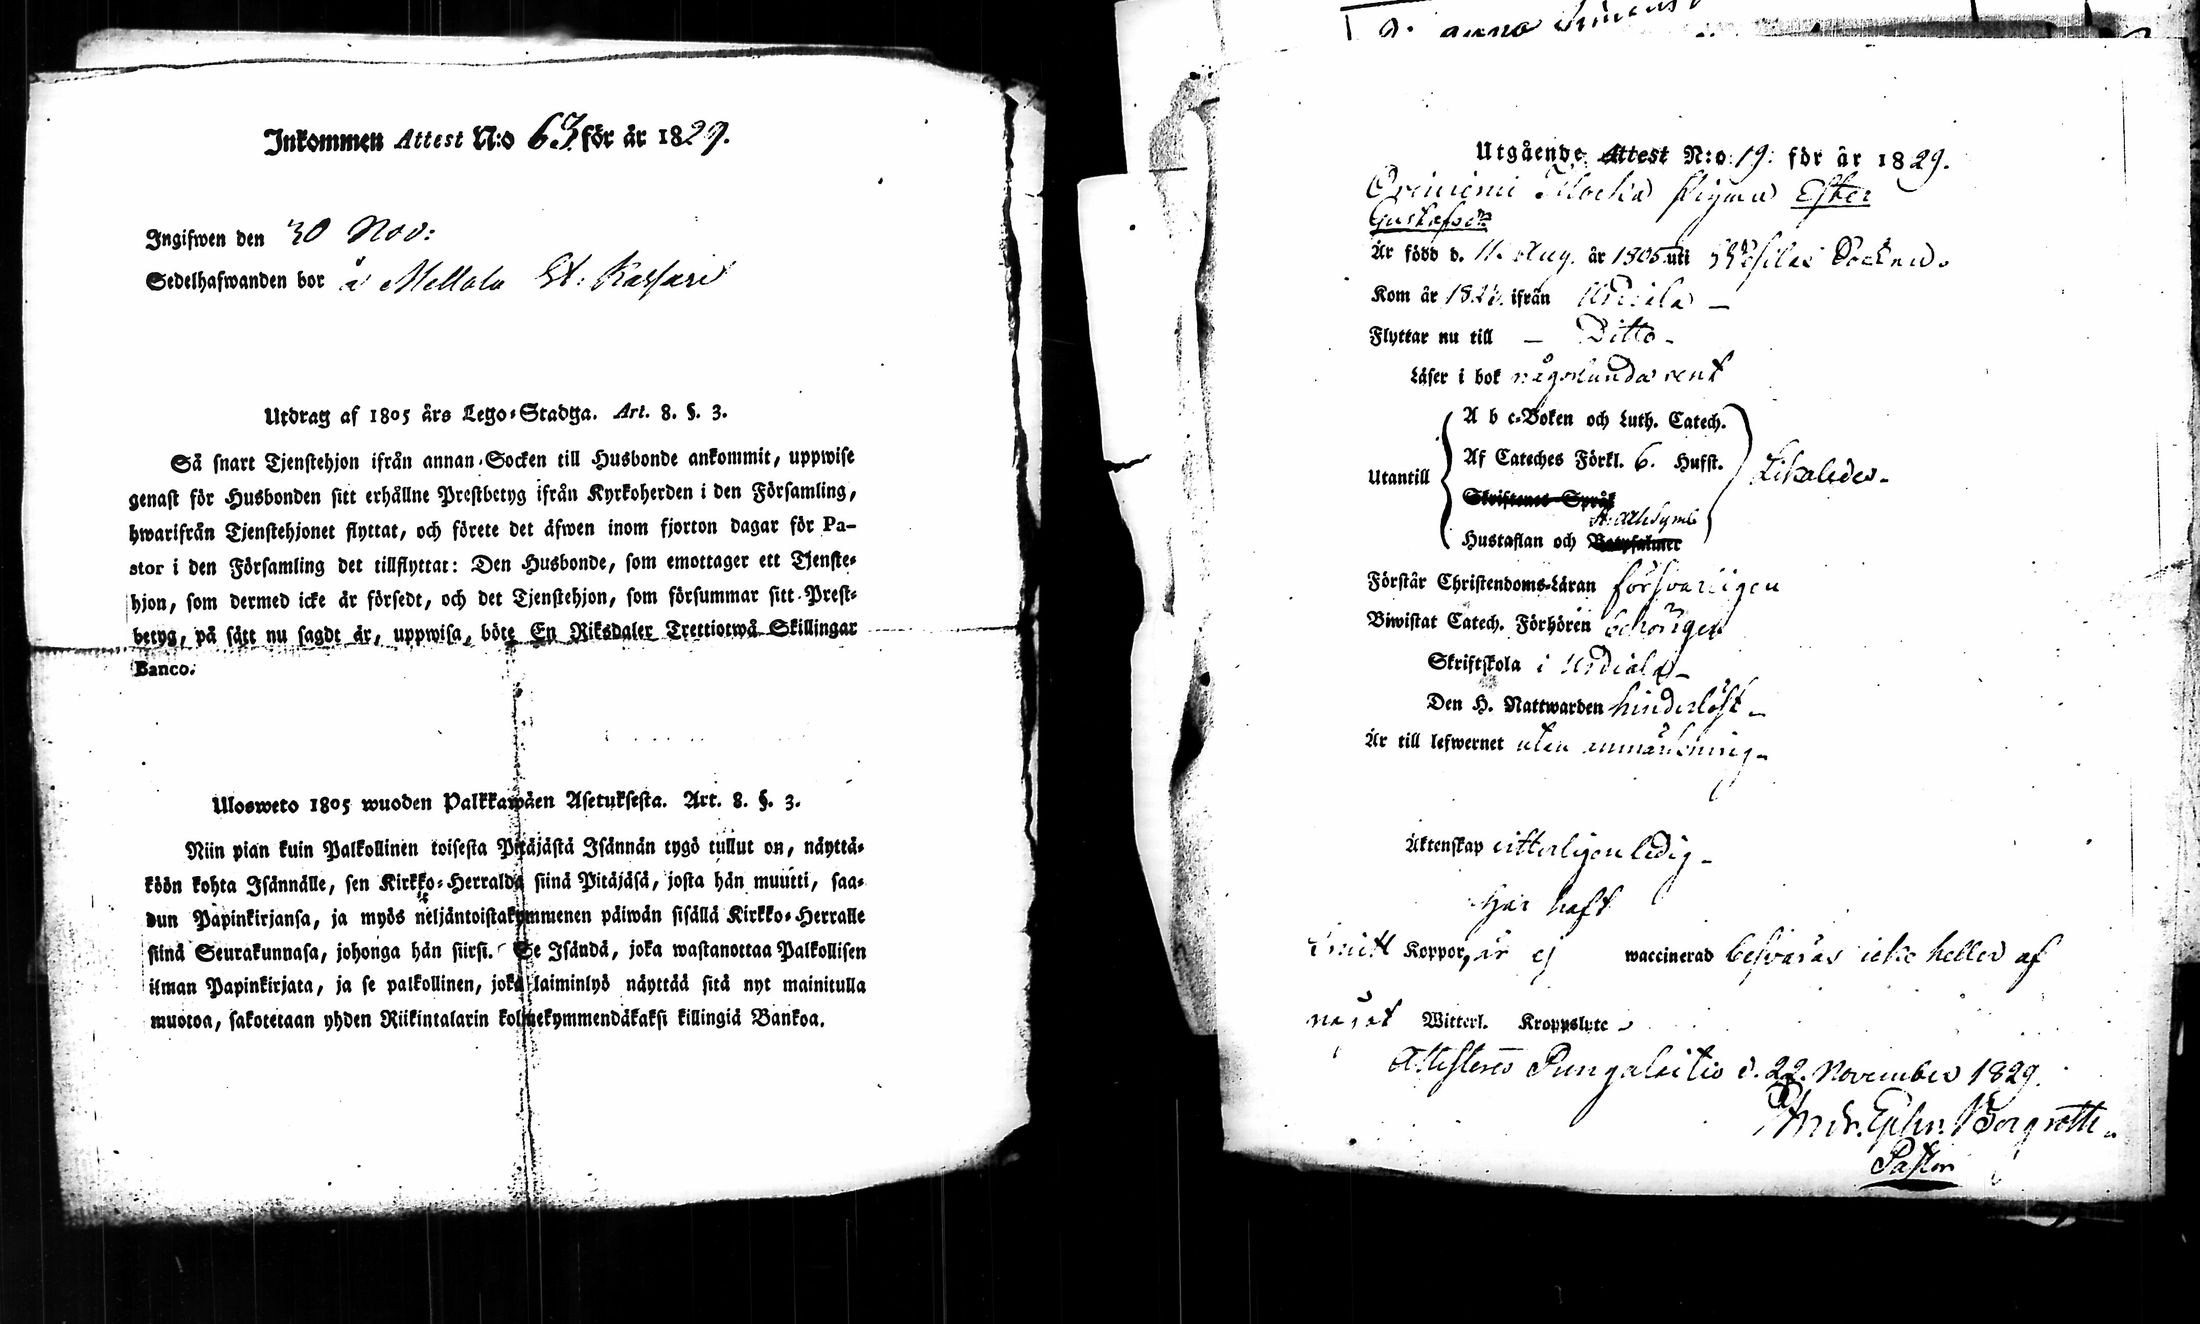 Inkommen Attest N:o 63 för år 1829.
Ingifwen den 30 Nov:
Sedelhafwanden bor å Mellola St: Kassari
Utdrag af 1805 års Lego-Stadga. Art. 8. §. 3.
Så snart Tjenstehjon ifrån annan Socken till Husbonde ankommit, uppwise
genast för Husbonden sitt erhållne Prestbetyg ifrån Kyrkoherden i den Församling,
hwarifrån Tjenstehjonet flyttat, och förete det äfwen inom fjorton dagar för Pa-
stor i den Församling det tillflyttat: Den Husbonde, som emottager ett Tjenste-
hjon, som dermed icke är försedt, och det Tjenstehjon, som försummar sitt Prest-
betyg, på sätt nu sagdt är, uppwisa, böte En Riksdaler Trettiotwå Skillingar
Banco.
Ulosweto 1805 wuoden Palkkawäen Asetuksesta. Art. 8. §. 3.
Niin pian kuin Palkollinen toisesta Pitäjästä Isännän tygö tullut on, näyttä-
köön kohta Isännälle, sen Kirkko-Herralda siinä Pitäjäsä, josta hän muutti, saa-
dun Papinkirjansa, ja myös neljäntoistakymmenen päiwän sisällä Kirkko-Herralle
siinä Seurakunnasa, johonga hän siirsi. Se Isändä, joka wastanottaa Palkollisen
ilman Papinkirjata, ja se palkollinen, joka laiminlyö näyttää sitä nyt mainitulla
muotoa, sakotetaan yhden Riikintalarin kolmekymmendäkaksi killingiä Bankoa.
Utgående Attest N:o 19: för år 1829.
pigan Ester
Gustafsdr
Är född d. 11. Aug. år 1805 uti Socken.
Kom år 182 ifrån Urdiala –
Flyttar nu till – Ditto –
Läser i bok någorlunda rent
A b c-Boken och Luth. Catech.
Af Cateches Förkl. 6. Hufst.
Utantill Likaledes –
Skriftenes Språk
St: Ath Symb
Hustaflan och Botpsalmer
Förstår Christendoms-Läran försvarligen
Biwistat Catech. Förhören behörigen
Skriftskola i Urdiala –
Den H. Nattwarden hinderlöst –
Är till lefwernet utan anmärkning –
Äktenskap witterligen ledig –
Har haft
Koppor, är ej waccinerad besväras icke heller af
något Witterl. Kroppslyte –
Attesteras Pungalaitio d. 22. November 1829.
Andr. Ephr. Borgroth.
Pastor